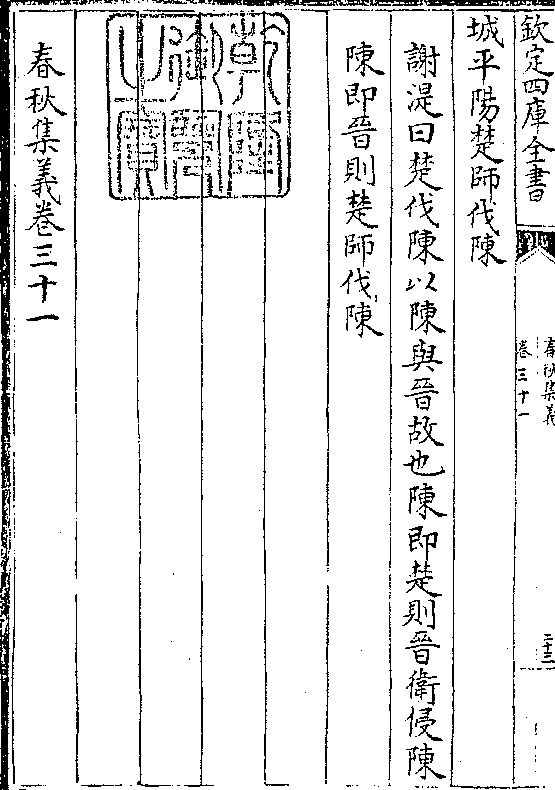 欽定四庫全書
春秋集義
卷三十一
二十三
城平陽楚師伐陳
謝湜曰楚伐陳以陳與晉故也陳即楚則晉衛侵陳
陳即晉則楚師伐陳
乾隆御覽之寶
春秋集義卷三十一